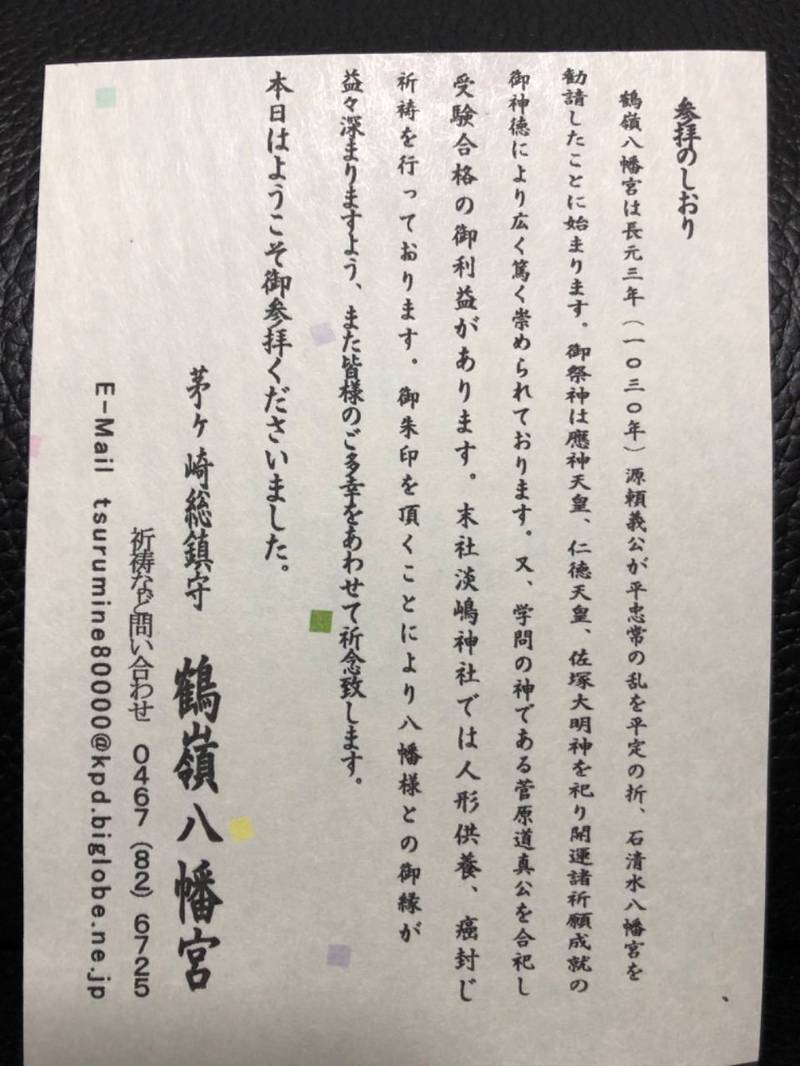 参拝のしおり
鶴嶺八幡宮は長元三年（一〇三〇年）源頼義公が平忠常の乱を平定の折、石清水八幡宮を
勧請したことに始まります。御祭神は應神天皇、仁徳天皇、佐塚大明神を祀り開運諸祈願成就の
御神徳により広く篤く崇められております。又、学問の神である菅原道真公を合祀し
受験合格の御利益があります。末社淡嶋神社では人形供養、癌封じ
祈祷を行っております。御朱印を頂くことにより八幡様との御縁が
益々深まりますよう、また皆様のご多幸をあわせて祈念致します。
本日はようこそ御参拝くださいました。
茅ヶ崎総鎮守 鶴嶺八幡宮
祈祷など問い合わせ 0467 (82) 6725
E-Mail tsurumine80000@kpd.biglobe.ne.jp